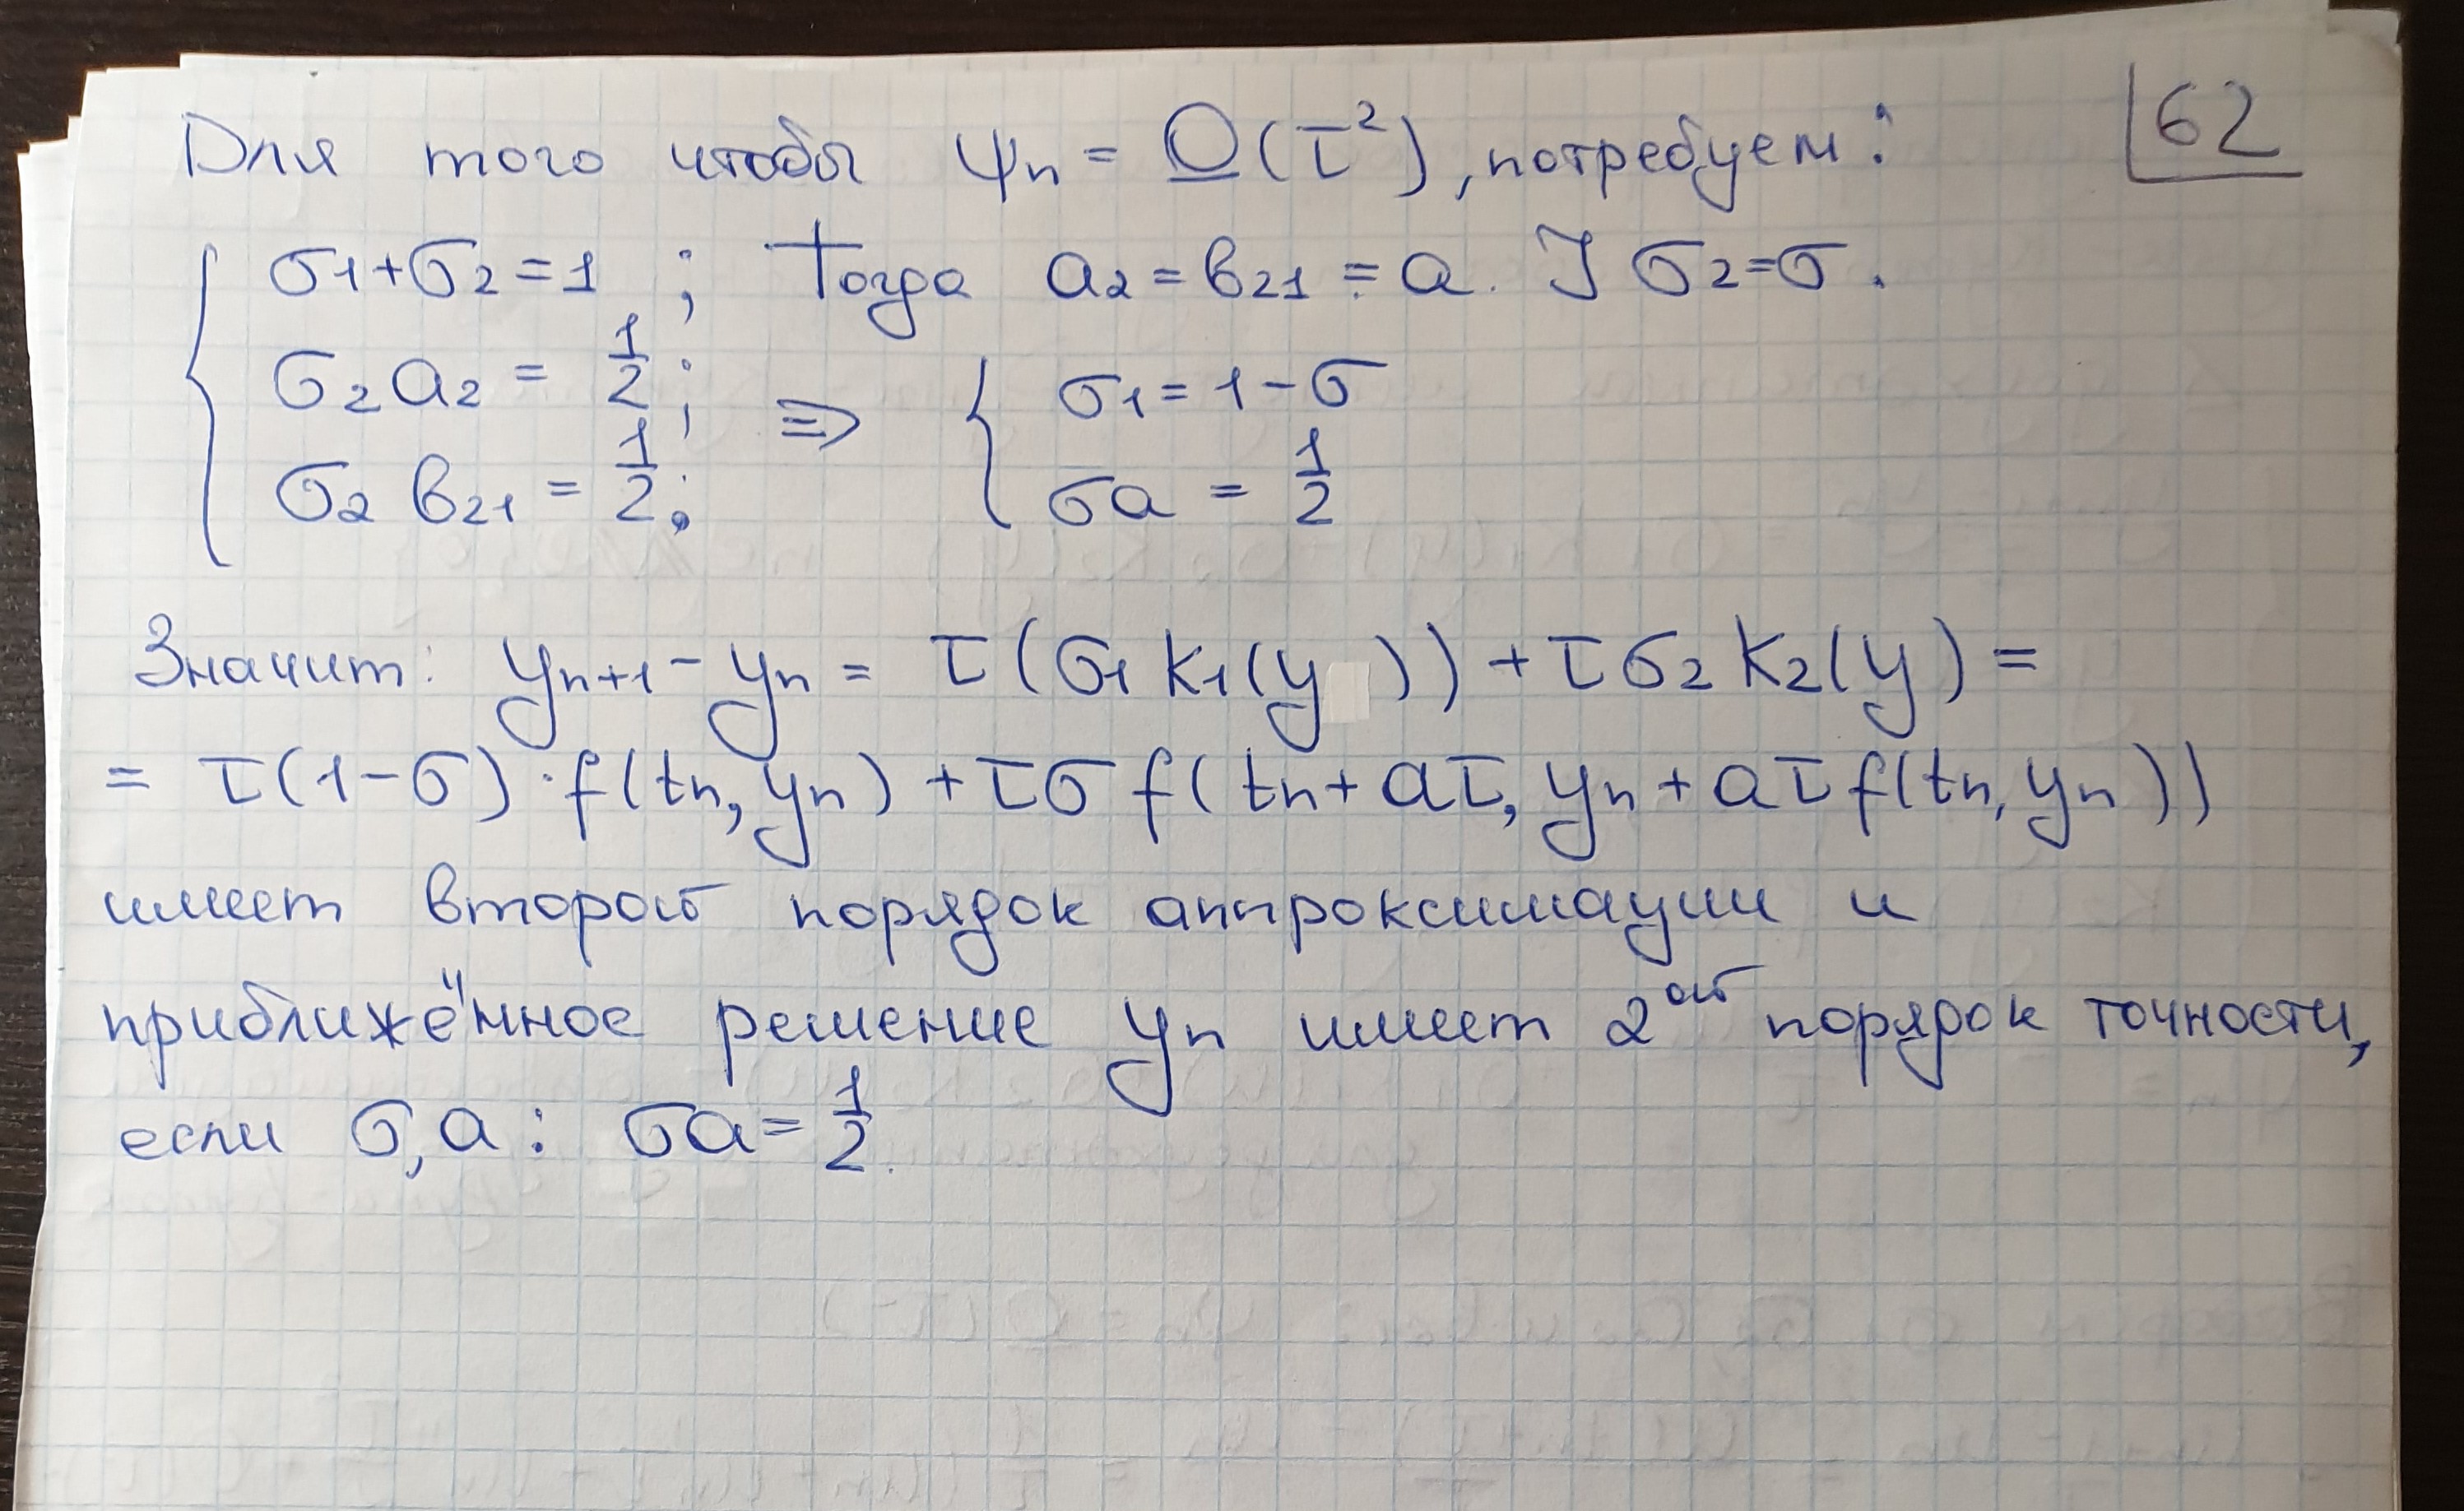 Для того чтобы ψn = O(τ²), потребуем: 62
{ σ1+σ2=1 ; Тогда a2 = b21 = a. ] σ2=σ.
σ2 a2 = 1/2; ⇒ { σ1 = 1-σ
σ2 b21 = 1/2; σa = 1/2
Значит: yn+1 - yn = τ(σ1 k1(y )) + τσ2 k2(y) =
= τ(1-σ)·f(tn, yn) + τσ f(tn+aτ, yn+aτf(tn, yn))
имеет второй порядок аппроксимации и
приближённое решение yn имеет 2ой порядок точности,
если σ, a: σa = 1/2.